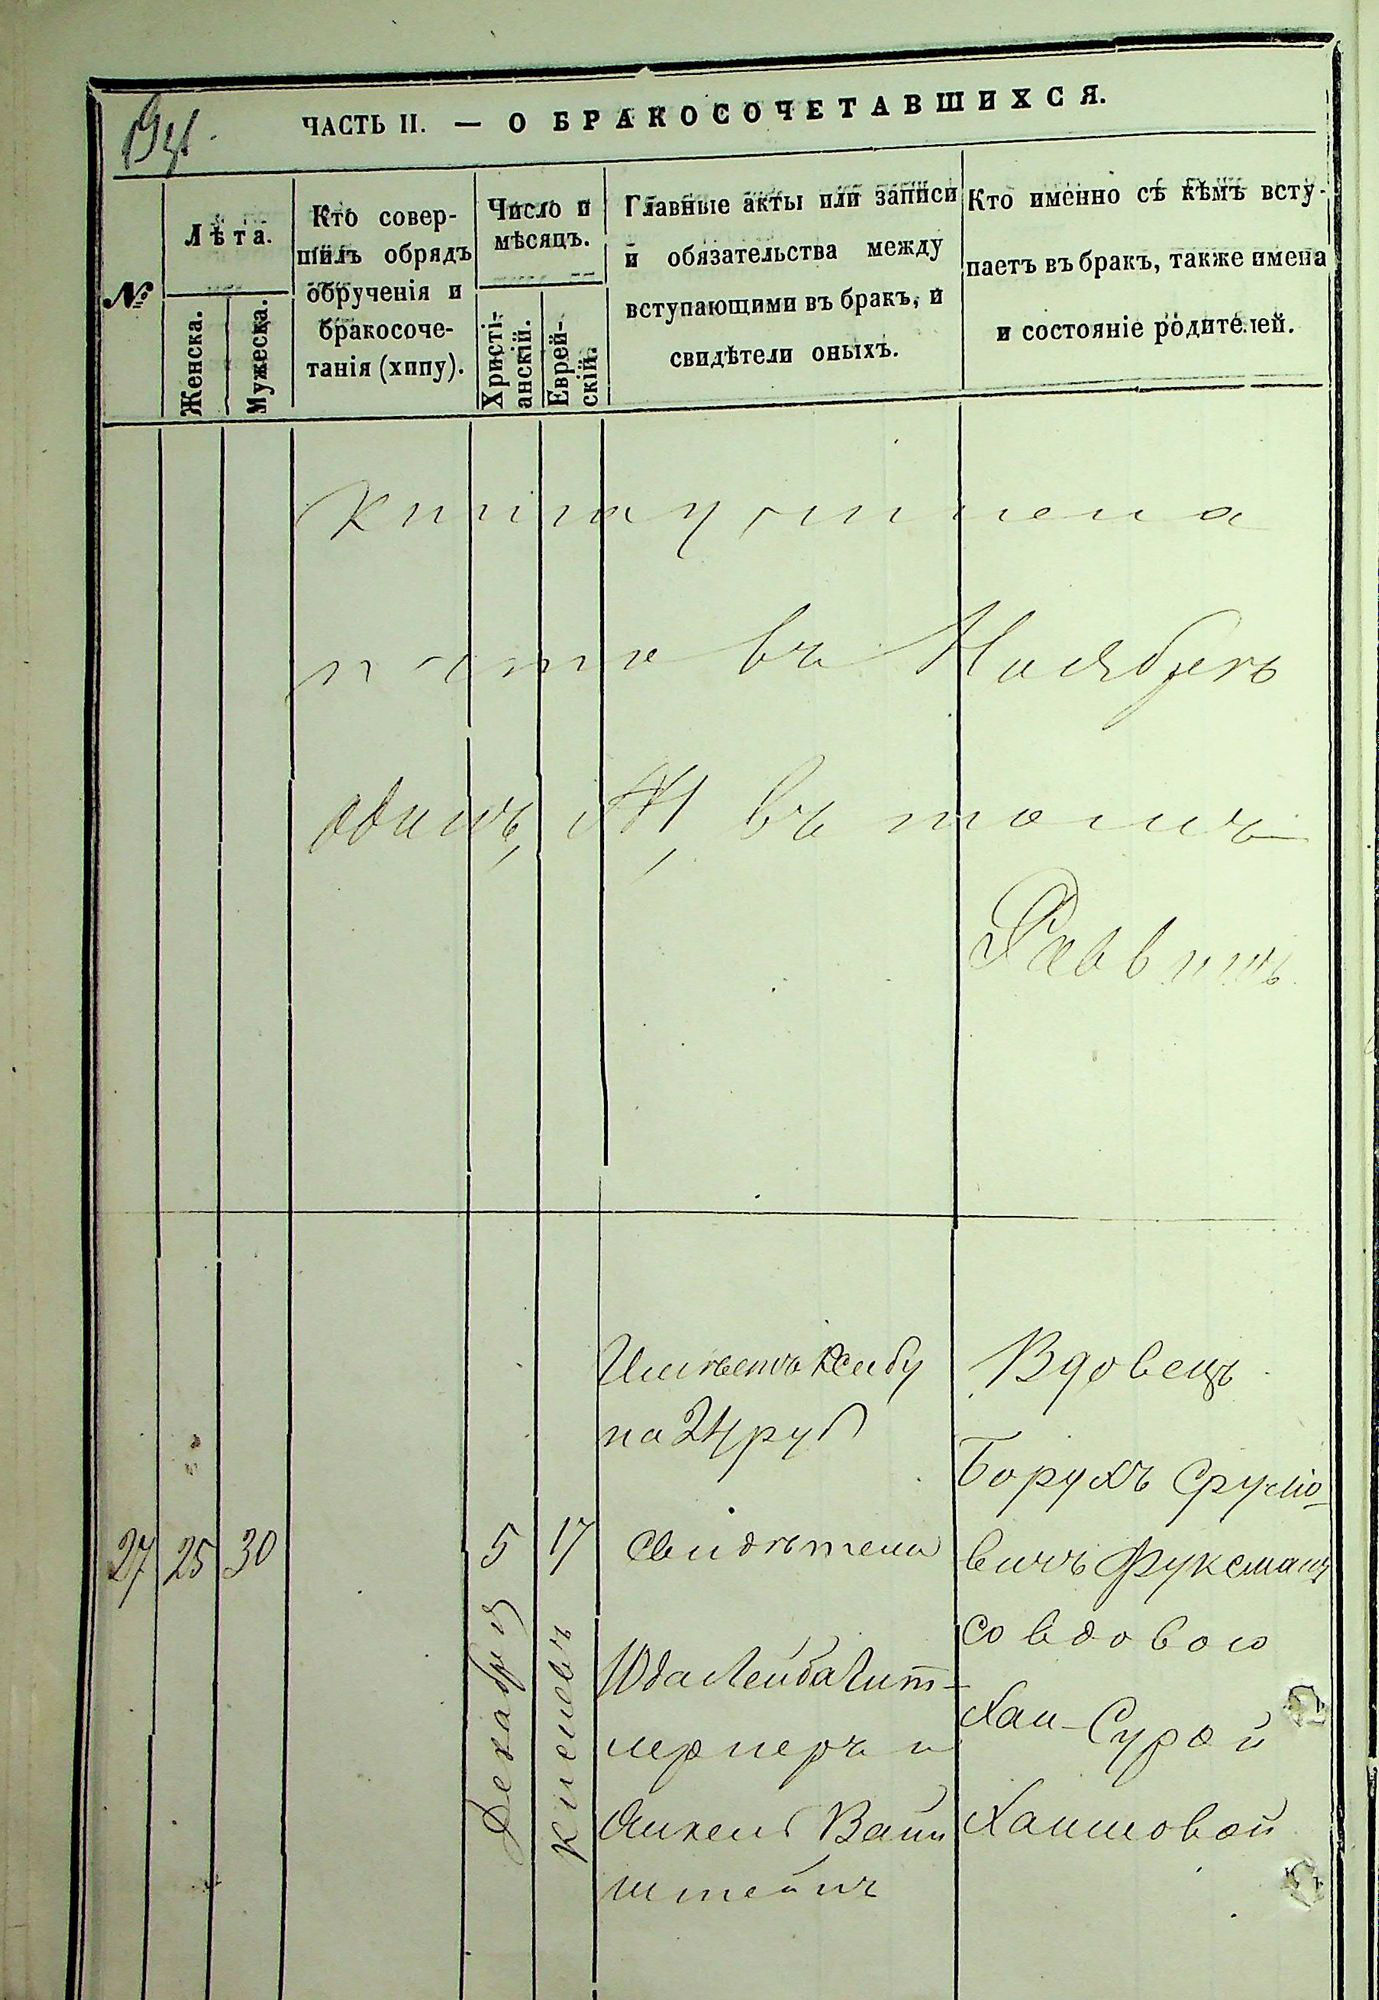 ЧАСТЬ II. — О БРАКОСОЧЕТАВШИХСЯ.
№
Лѣта.
Женска.
Мужеска.
Кто совер-
шилъ обрядъ
обрученія и
бракосоче-
танія (хипу).
Число и
мѣсяцъ.
Христі-
анскій.
Еврей-
скій.
Главные акты или записи
и обязательства между
вступающими въ бракъ, и
свидѣтели оныхъ.
Кто именно съ кѣмъ всту-
паетъ въ бракъ, также имена
и состояніе родителей.
въ Ноябрѣ
одинъ, въ томъ
Раввинъ
27
25
30
5
Декабря
17
Кислевъ
на 24 руб
Свидѣтели
Юда Лейба Лит-
Анкель Вайн
штейнъ
Вдовецъ
Борухъ Срулю-
вичъ Фуксманъ
со вдовою
Хаи-Сурой
Хаимовой